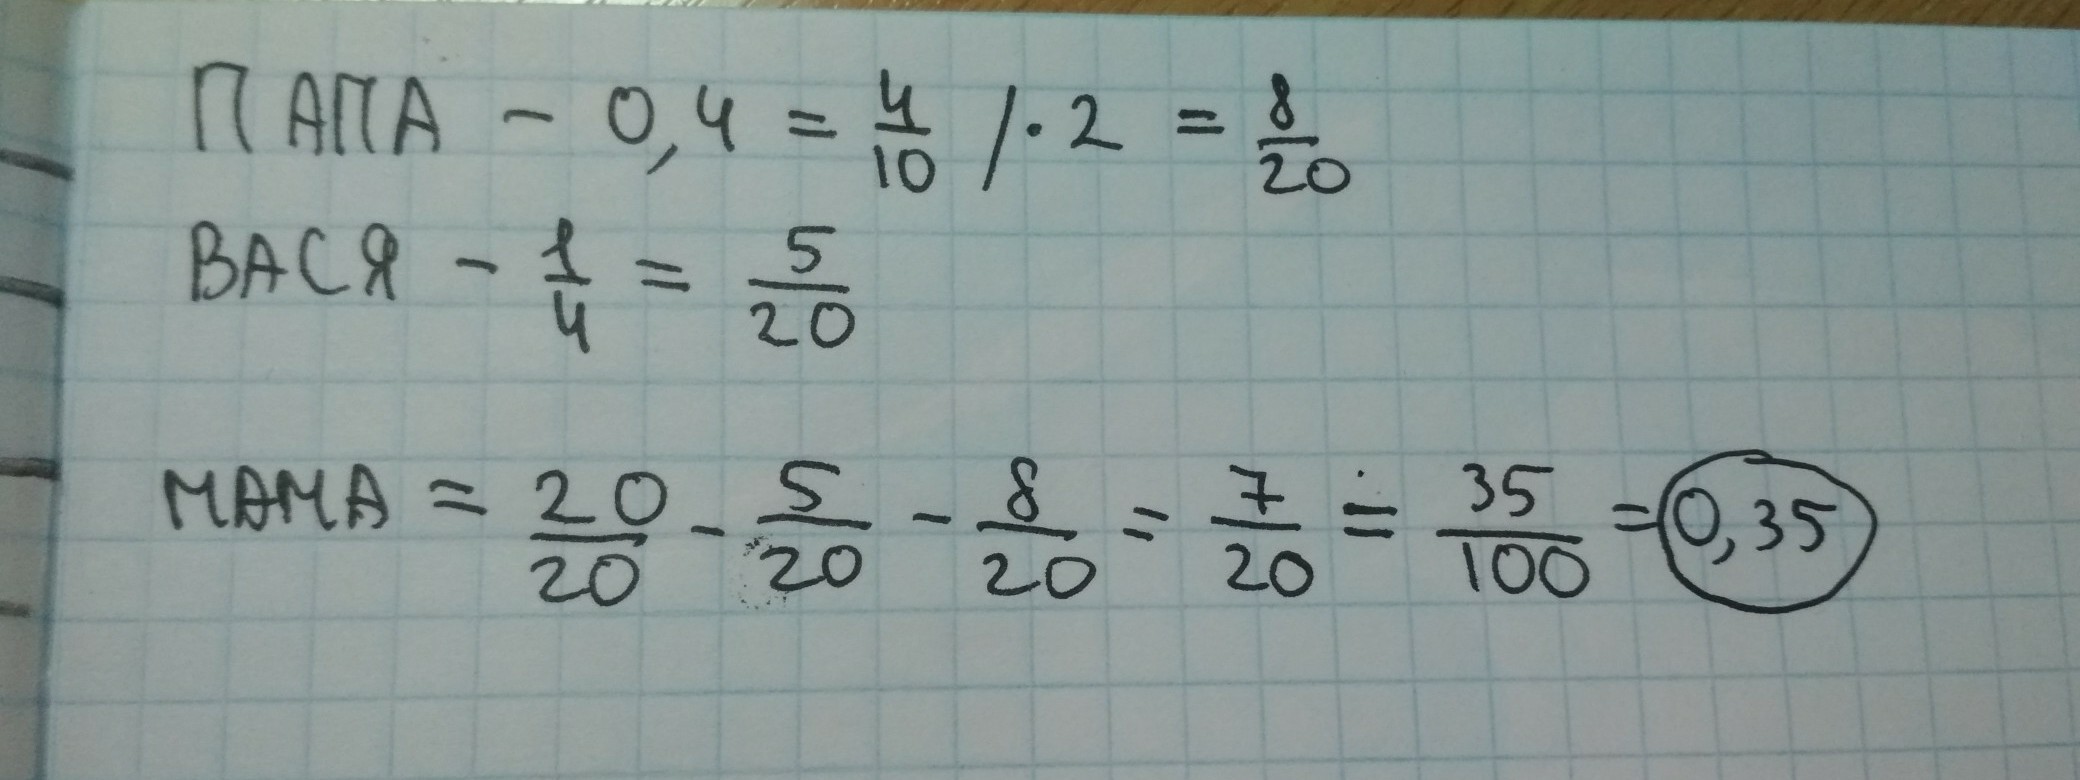 ПАПА - 0,4 = 4/10 /·2 = 8/20
ВАСЯ - 1/4 = 5/20
МАМА = 20/20 - 5/20 - 8/20 = 7/20 = 35/100 = 0,35